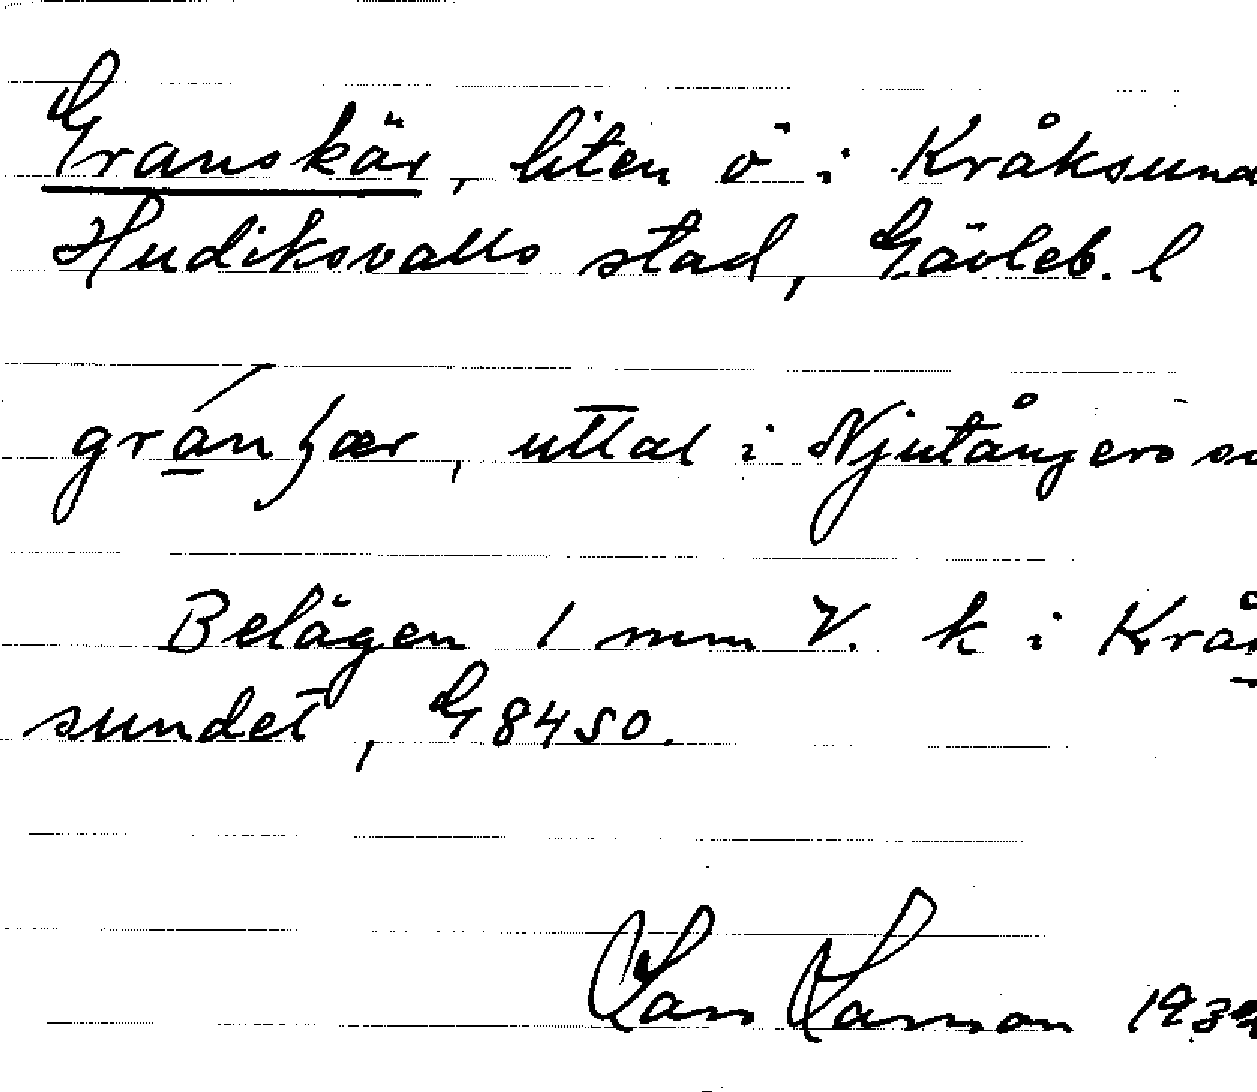 Granskär, liten ö i Kråksund
Hudiksvalls stad, Gävleb. l
uttal i Njutångers
Belägen 1 mm V. k i
sundet, G 8450.
Lars Larsson